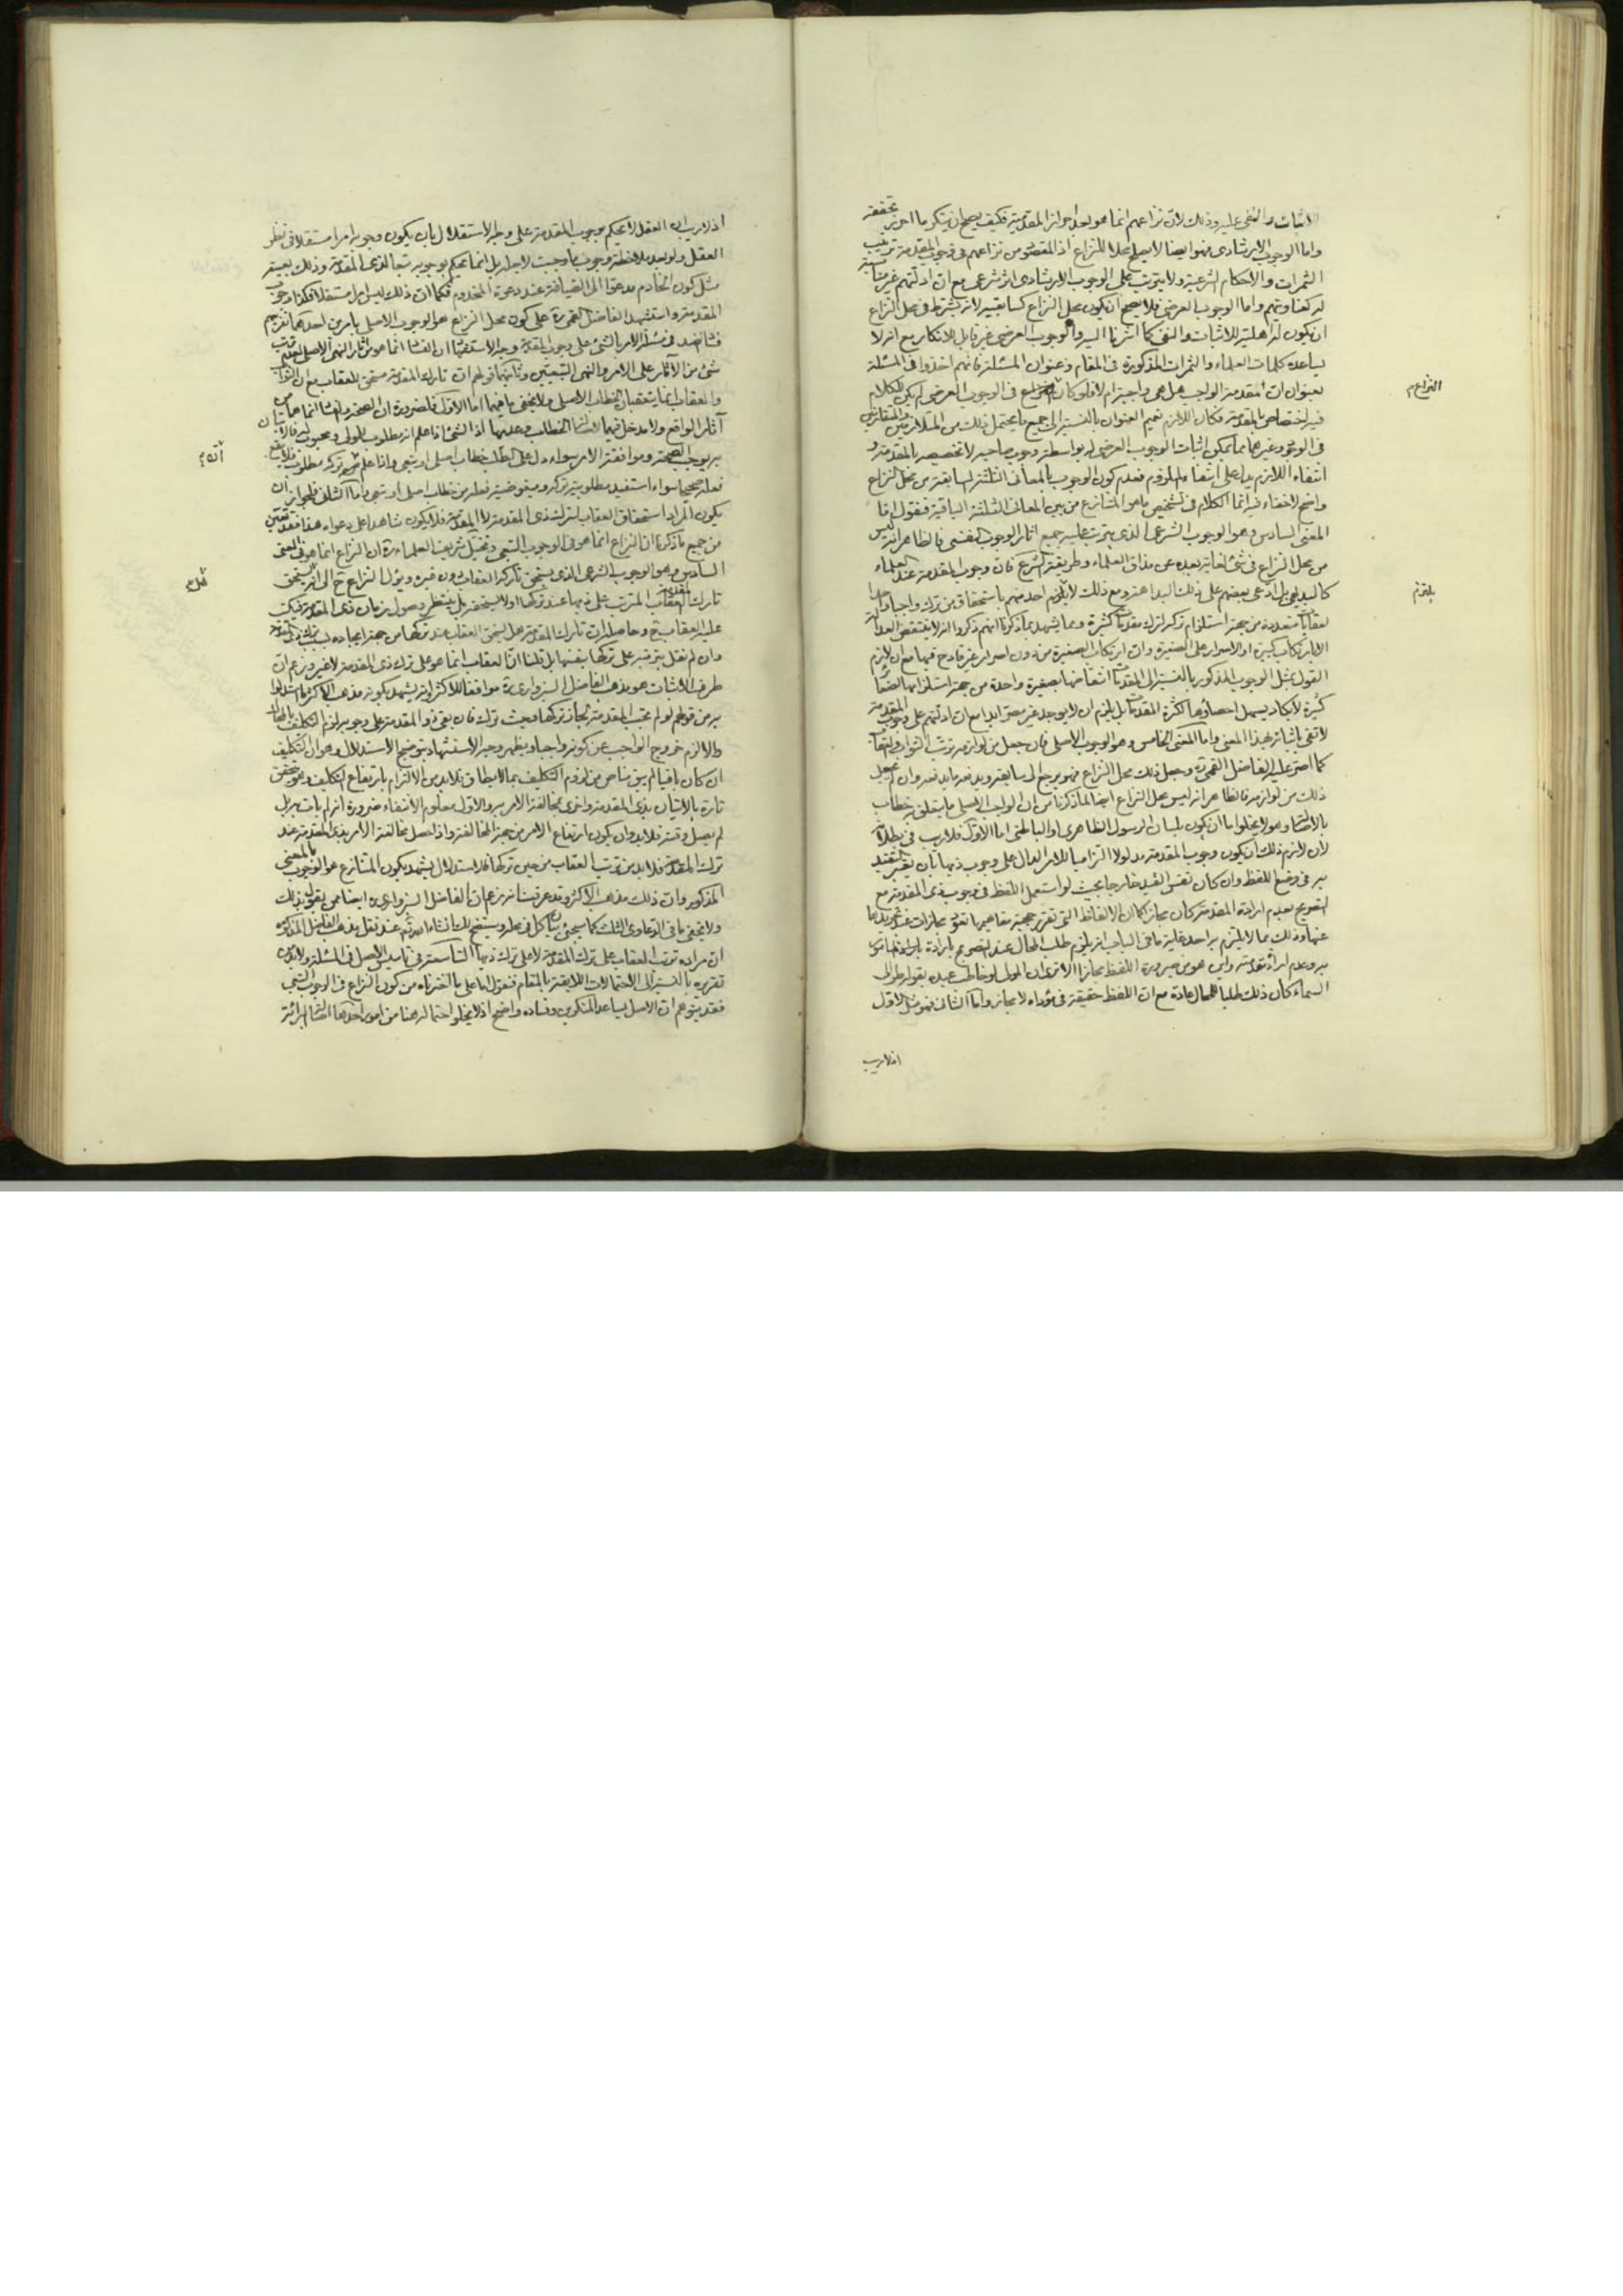 الاثبات والنفى عليه وذلك لان نزاعهم انما هو بعد احراز المقدمية فكيف يصح ان ينكر ما احرز تحققه
واما الوجوب الارشادى فهو ايضا لا يصلح محلا للنزاع اذ المقصود من نزاعهم فى وجوب المقدمة ترتيب
الثمرات والاحكام الشرعية ولا يترتب على الوجوب الارشادى اثر شرعى مع ان ادلتهم غير
واما الوجوب العرضى فلا يصح ان يكون محل النزاع كسابقيه لانه يشترط فى محل النزاع
ان يكون له اهلية للاثبات والنفى كما اشرنا اليه والوجوب العرضى غير قابل للانكار مع انه لا
يساعده كلمات العلماء والثمرات المذكورة فى المقام وعنوان المسئلة فانهم اخذوا فى المسئلة
بعنوان ان مقدمة الواجب هل هى واجبة ام لا فلو كان النزاع فى الوجوب العرضى لم يكن للكلام
فيه اختصاص بالمقدمة فكان اللازم تعميم العنوان بالنسبة الى جميع ما يحتمل ذلك من المتلازمين
فى الوجود وغيرهما مما يمكن اثبات الوجوب العرضى له بواسطة وجوب صاحبه لا تخصيصه بالمقدمة و
انتفاء اللازم يدل على انتفاء الملزوم فعدم كون الوجوب بالمعانى الثلثة السابقة من محل النزاع
واضح لا خفاء فيه انما الكلام فى تشخيص ما هو المتنازع من بين المعانى الثلثة الباقية فنقول اما
المعنى السادس وهو الوجوب الشرعى الذى يترتب عليه جميع اثار الوجوب النفسى فالظاهر انه ليس
من محل النزاع فى شئ لغاية بعده عن مذاق العلماء وطريقة الشرع فان وجوب المقدمة عند العلماء
كالبديهى بل ادعى بعضهم على ذلك البداهة ومع ذلك لا يلتزم احد منهم باستحقاق من ترك واجبا واحدا
لعقابات متعددة من جهة استلزام تركه لترك مقدمات كثيرة ومما يشهد بما ذكرنا انهم ذكروا انه لا ينتقض العدالة
الا بارتكاب كبيرة او الاصرار على الصغيرة وان ارتكاب الصغيرة من دون اصرار غير قادح فيها مع ان لازم
القول بمثل الوجوب المذكور بالنسبة الى المقدمات انتقاضها بصغيرة واحدة من جهة استلزامها لصغائر
كثيرة لا يكاد يسهل احصاؤها لكثرة المقدمات بل يلزم ان لا يوجد غير مصر ابدا مع ان ادلتهم على وجوب المقدمة
لا تفى باثباته بهذا المعنى واما المعنى الخامس وهو الوجوب الاصلى فان جعل من لوازمه ترتب الثواب والعقاب
كما اصر عليه الفاضل القمى ره وجعل ذلك محل النزاع فهو يرجع الى سابقه ويدفعه ما يدفعه وان لم يجعل
ذلك من لوازمه فالظاهر انه ليس محل النزاع ايضا لما ذكرنا من ان الواجب الاصلى ما يتعلق به خطاب
بالاصالة وهو لا يخلوا ما ان يكون بلسان الرسول الظاهرى او الباطنى اما الاول فلا ريب فى بطلانه
لان لازم ذلك ان يكون وجوب المقدمة مدلولا التزاميا للامر الدال على وجوب ذيها بان يعتبر التقييد
به فى وضع اللفظ وان كان نفس القيد خارجا بحيث لو استعمل اللفظ فى وجوب ذى المقدمة مع
التصريح بعدم ارادة المقدمة كان مجازا كما ان الالفاظ
عنها وذلك مما لا يلتزم به احد غاية ما فى الباب انه يلزم طلب المحال عند التصريح بارادة
وعدم ارادة مقدمته واين هو من صيرورة اللفظ مجازا الا ترى ان المولى لو خاطب عبده بقوله طر الى
السماء كان ذلك طلبا للمحال عادة مع ان اللفظ حقيقة فى مؤداه لا مجاز واما الثانى فهو مثل الاول
اذ لا ريب
النزاع م
يلتزم
اذ لا ريب ان العقل لا يحكم بوجوب المقدمة على وجه الاستقلال بان يكون وجوبه امرا مستقلا فى نظر
العقل ولو بعد ملاحظة وجوب ما وجبت لاجله بل انما يحكم بوجوبه تبعا لذى المقدمة وذلك بعينه
مثل كون الخادم مدعوا الى الضيافة عند دعوة المخدوم فكما ان ذلك ليس امرا مستقلا فكذا وجوب
المقدمة واستشهد الفاضل القمى ره على كون محل النزاع هو الوجوب الاصلى بامرين احدهما تفريعهم
فى مسئلة الامر بالشئ على وجوب المقدمة وجه الاستشهاد ان الفساد انما هو من اثار النهى الاصلى
شئ من الآثار على الامر والنهى التبعيين وثانيهما قولهم ان تارك المقدمة مستحق للعقاب مع ان الثواب
والعقاب انما يتعقبان الخطاب الاصلى ولا يخفى ما فيهما اما الاول فلضرورة ان الصحة والفساد انما هما من
آثار الواقع ولا مدخل فيها لاصالة الخطاب وعدمها اذ الشئ اذا علم انه مطلوب للمولى ومحبوب له فالاتيان
به يوجب الصحة وموافقة الامر سواء دل على الطلب خطاب اصلى او تبعى واذا علم
فعله صحيحا سواء استفيد مطلوبية تركه ومبغوضية فعله من خطاب اصلى او تبعى واما الثانى فلجواز ان
يكون المراد استحقاق العقاب لترك ذى المقدمة لا المقدمة فلا يكون شاهدا على دعواه هذا فقد تبين
من جميع ما ذكرنا ان النزاع انما هو فى الوجوب التبعى وتخيل شريف العلماء ره ان النزاع انما هو فى المعنى
السادس وهو الوجوب الشرعى الذى يستحق تاركه العقاب دون غيره ويؤل النزاع ح الى انه يستحق
تارك المقدمة العقاب المترتب على ذيها عند تركها او لا يستحقه بل ينتظر وصول زمان ذى المقدمة
عليه العقاب ح وحاصله ان تارك المقدمة هل يستحق العقاب عند تركها من جهة ايجاده لسبب ترك ذى المقدمة
وان لم نقل بترتبه على تركها بنفسها بل قلنا ان العقاب انما هو على ترك ذى المقدمة لا غير وزعم ان
طرف الاثبات هو مذهب الفاضل السبزوارى ره موافقا للاكثر وانه يشهد بكونه مذهب الاكثر ما استدلوا
به من قولهم لو لم تجب المقدمة لجاز تركها وحيث ترك فان بقى ذو المقدمة على وجوبه لزم التكليف بالمحال
والا لزم خروج الواجب عن كونه واجبا ويظهر وجه الاستشهاد بتوضيح الاستدلال وهو ان التكليف
ان كان باقيا لم يبق مناص من لزوم التكليف بما لا يطاق فلا بد من الالتزام بارتفاع التكليف وهو يتحقق
تارة بالاتيان بذى المقدمة واخرى بمخالفة الامر به والاول معلوم الانتفاء ضرورة انه لم يات به بل
لم يصل وقته فلا بد وان يكون ارتفاع الامر من جهة المخالفة واذا حصل مخالفة الامر بذى المقدمة عند
ترك المقدمة فلا بد من ترتب العقاب من حين تركها فالاستدلال يشهد بكون المتنازع هو الوجوب بالمعنى
المذكور وان ذلك مذهب الاكثر وقد عرفت انه زعم ان الفاضل السبزوارى ره ايضا ممن يقول بذلك
ولا يخفى ما فى الدعاوى الثلث كما سيجئ بيان كل فى محله وسيتضح لك انشاء الله تعالى عند نقل مذهب الفاضل المذكور
ان مراده ترتب العقاب على ترك المقدمة لا على ترك ذيها التاسعة فى تاسيس الاصل فى المسئلة ولا بد من
تقريره بالنسبة الى الاحتمالات اللايقة بالمقام فنقول اما على ما اخترناه من كون النزاع فى الوجوب التبعى
فقد يتوهم ان الاصل يساعد المنكرين وفساده واضح اذ لا يخلو احتماله هنا من امور احدها اصالة البرائة